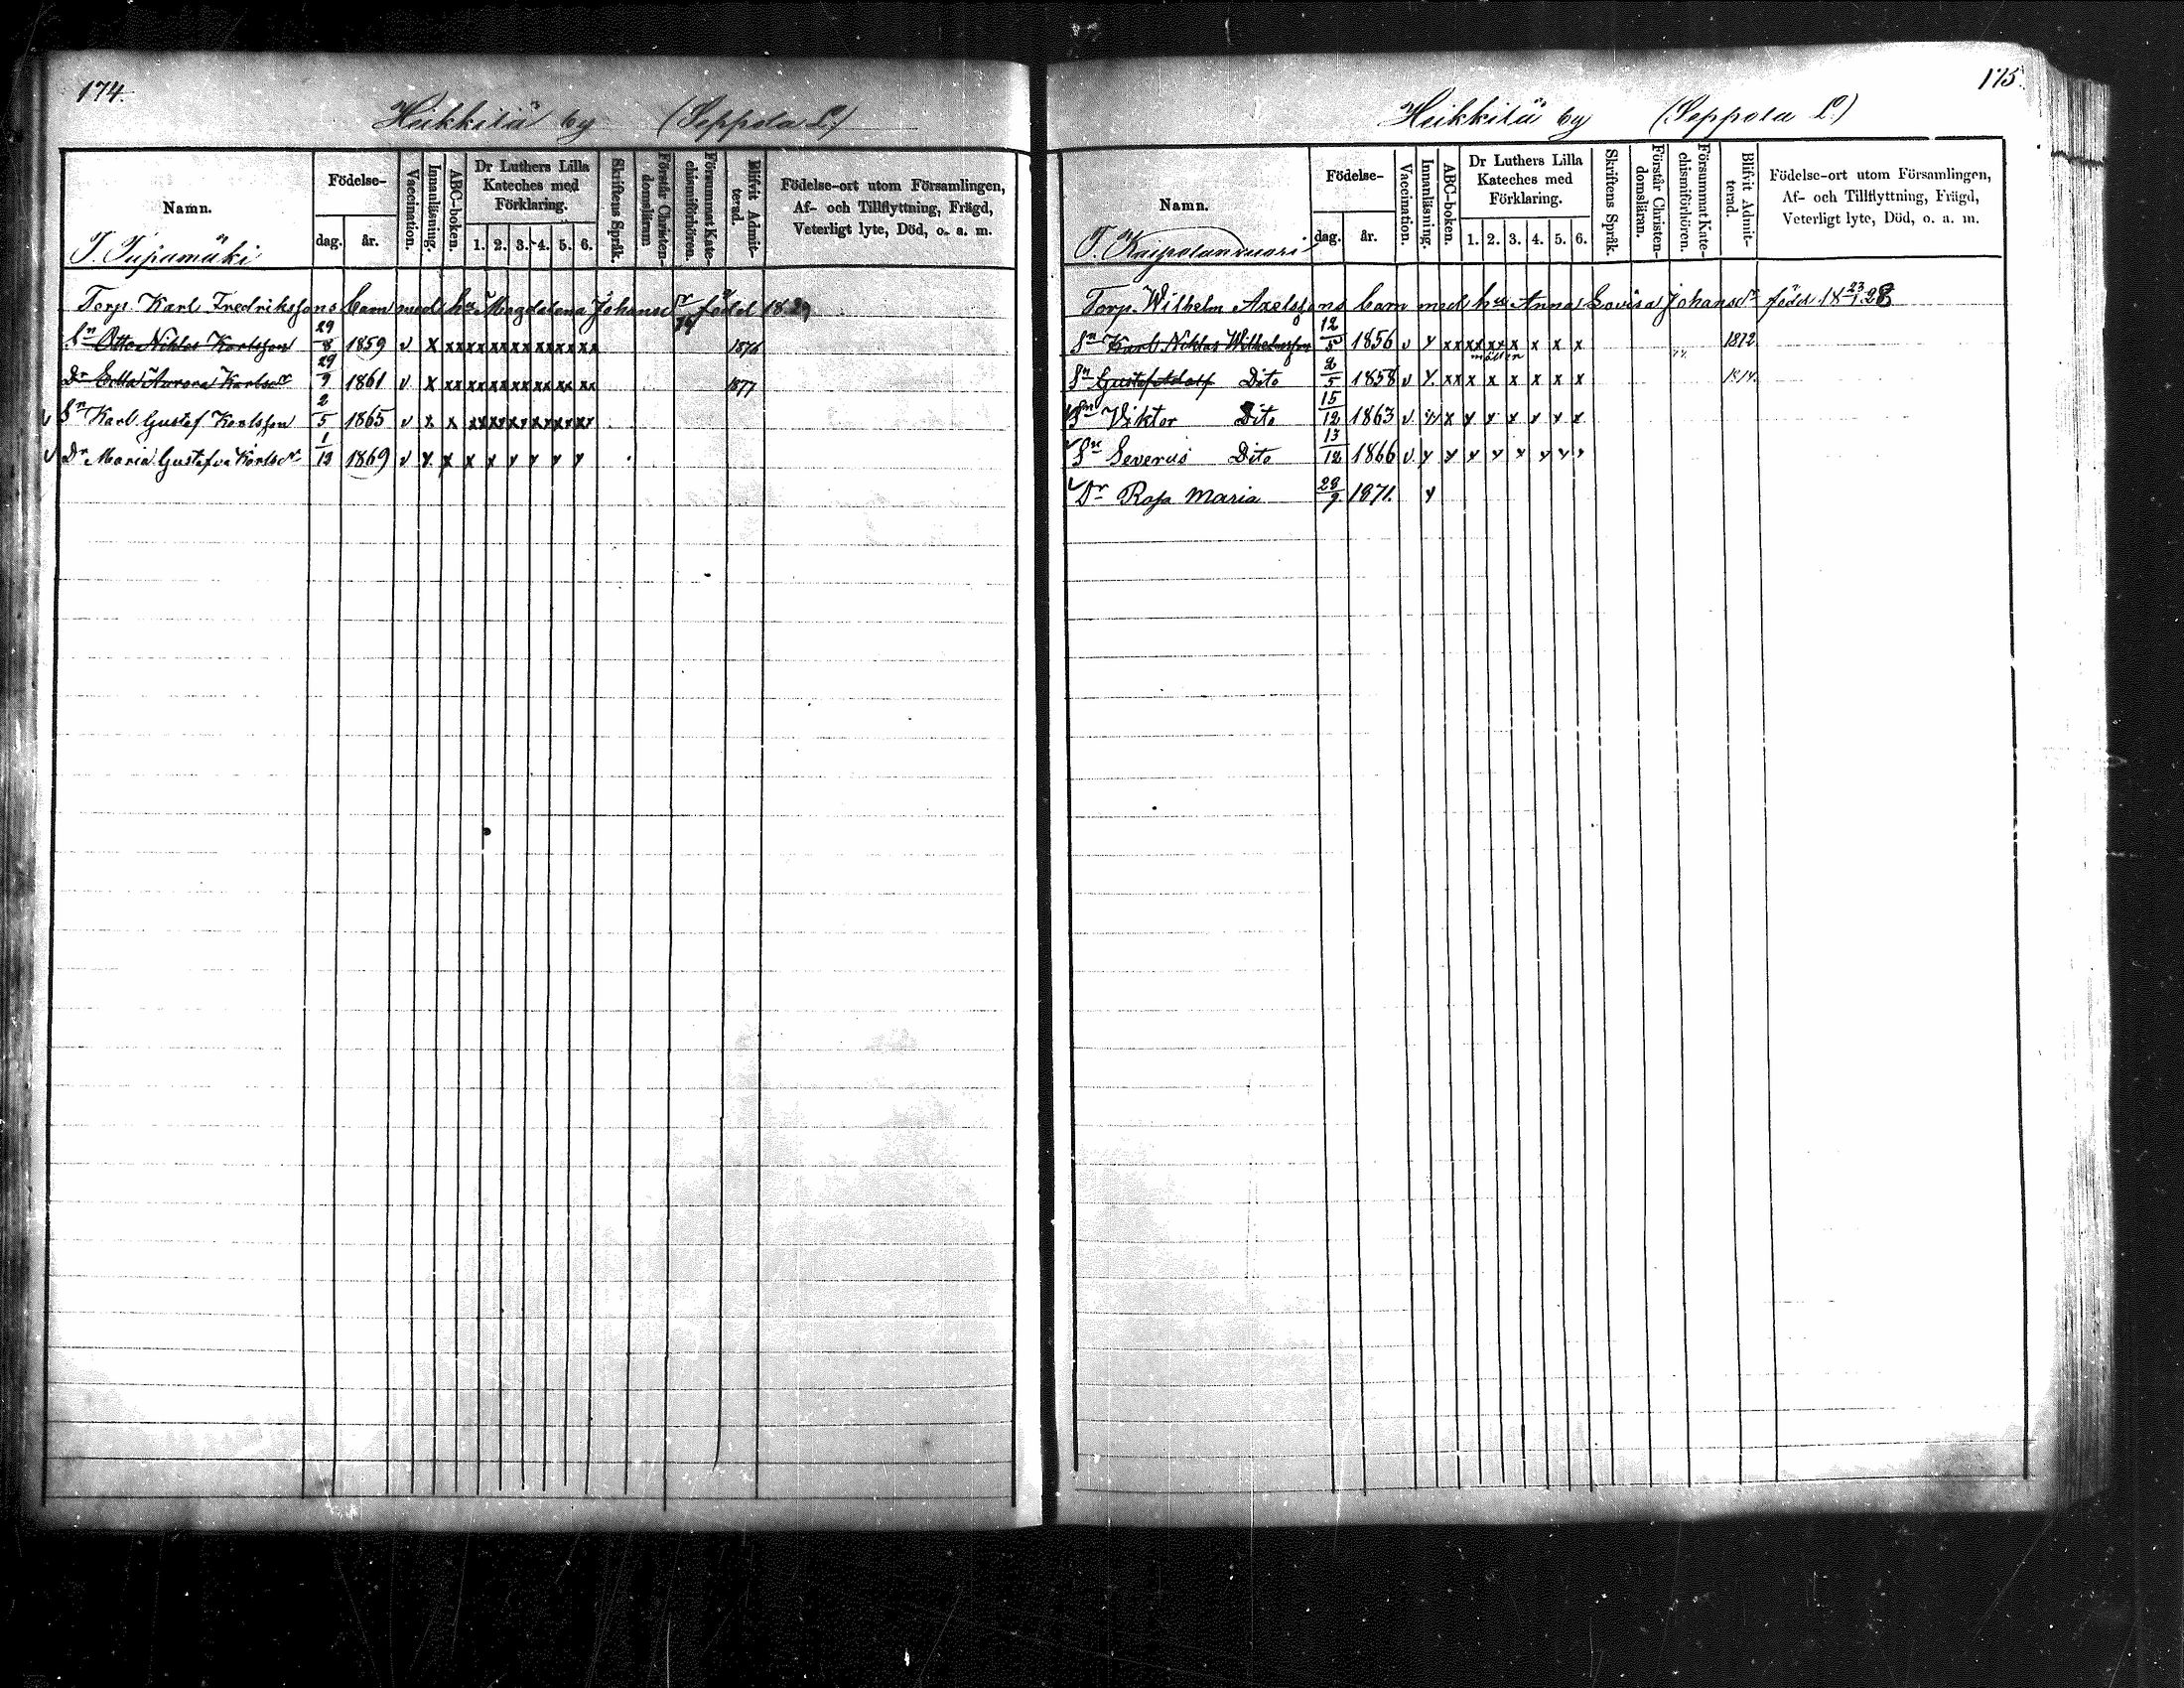 174.
Heikkilä by (Seppola L.)
Namn.
Födelse-
dag.
år.
Vaccination.
Innanläsning.
ABC-boken.
Dr Luthers Lilla Kateches med Förklaring.
1. 2. 3. 4. 5. 6.
Skriftens Språk.
Förstår Christen-domsläran
Försummat Kate-chismiförhören.
Blifvit Admit-terad.
Födelse-ort utom Församlingen,
Af- och Tillflyttning, Frägd,
Veterligt lyte, Död, o. a. m.
T. Tupamäki
Torp. Karl Fredrikssons barn med hu Magdalena Johansdr född 1829
Sn Otto Niklas Karlsson 29/8 1859 v x xx xx xx xx xx xx xx 1876
Dr Edla Aurora Karlsdr 29/9 1861 v x xx xx xx xx xx xx xx 1877
v Sn Karl Gustaf Karlsson 2/5 1865 v x x xx xx xx xx xx xx
v Dr Maria Gustafva Karlsdr 1/12 1869 v x x x x x x x x
175.
Heikkilä by (Seppola L.)
Namn.
Födelse-
dag.
år.
Vaccination.
Innanläsning.
ABC-boken.
Dr Luthers Lilla Kateches med Förklaring.
1. 2. 3. 4. 5. 6.
Skriftens Språk.
Förstår Christen-domsläran.
Försummat Kate-chismiförhören.
Blifvit Admit-terad.
Födelse-ort utom Församlingen,
Af- och Tillflyttning, Frägd,
Veterligt lyte, Död, o. a. m.
T. Kaipolanvuori
Torp. Wilhelm Axelssons barn med hu Anna Lovisa Johansdr född 18 23/1 28
Sn Karl Niklas Wilhelmsson 12/5 1856 v x xx xx xx x x x x 1872
Sn Gustaf Adolf Dito 2/5 1858 v x xx x x x x x x 1874.
v Sn Viktor Dito 15/12 1863 v x x x x x x x x
v Sn Severus Dito 13/12 1866 v x x x x x x x x
v Dr Rosa Maria 28/9 1871. x